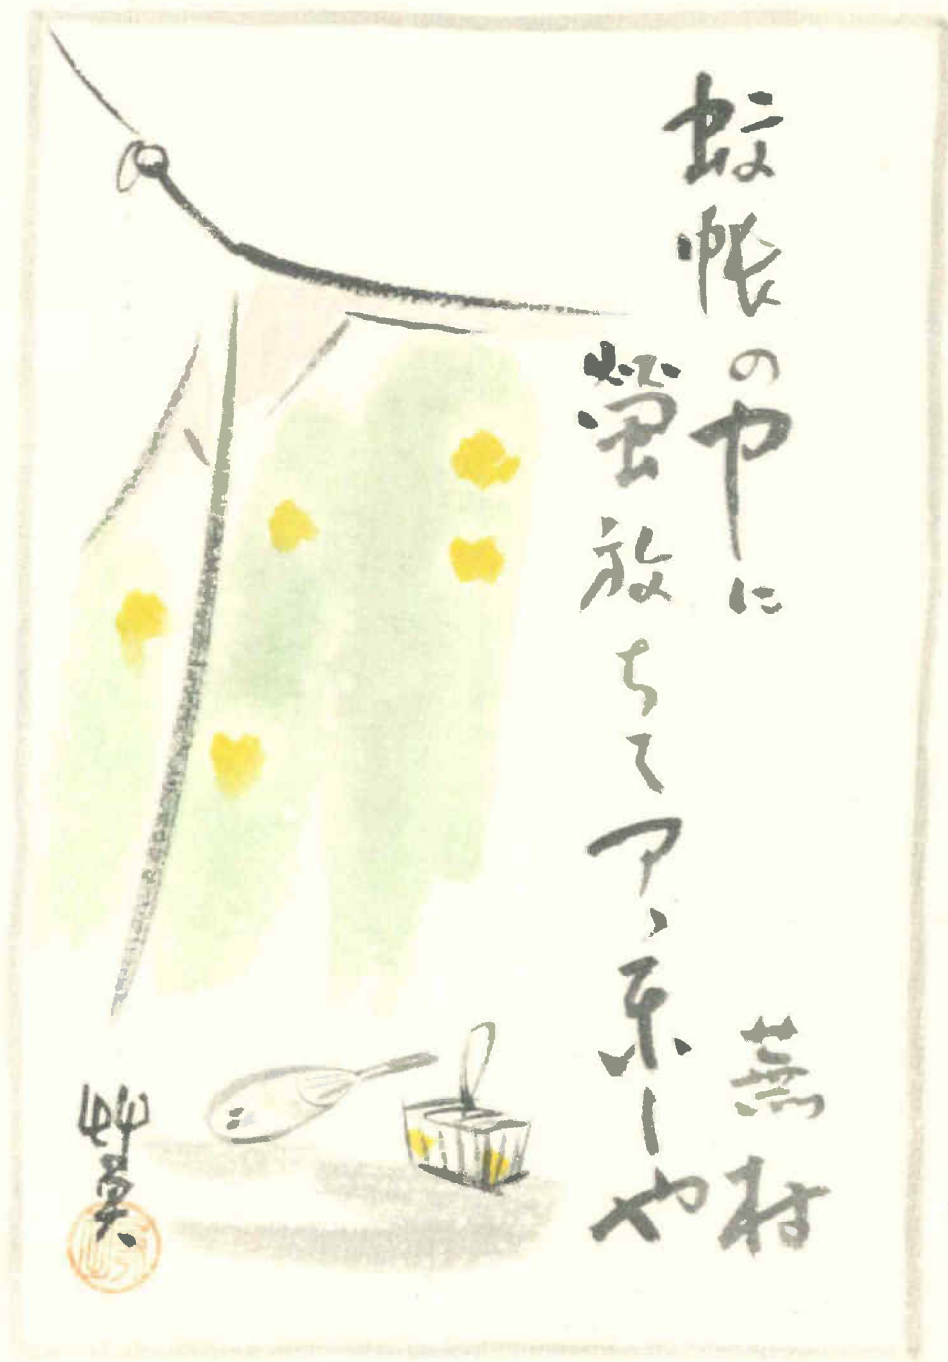 蚊帳の中に
螢放ちてアゝ楽しや
蕪村